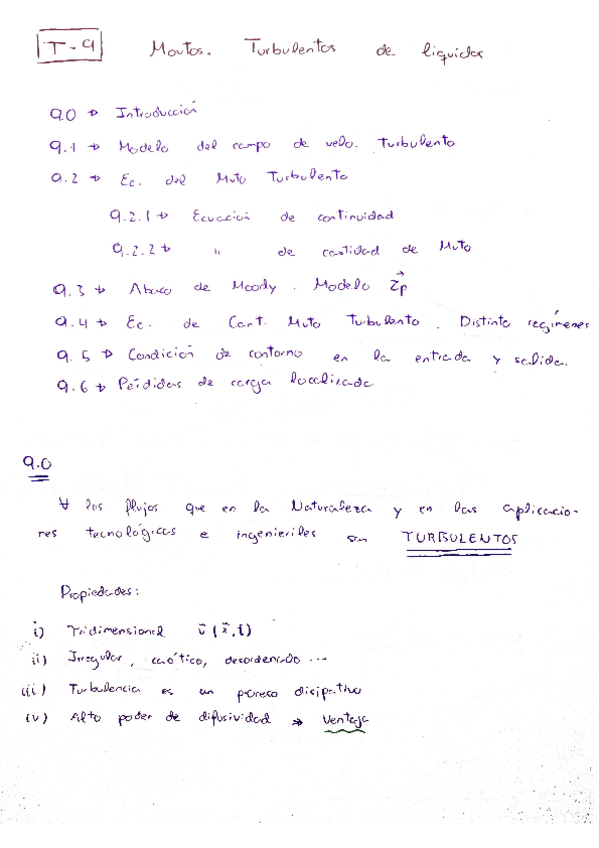 T-9 Movtos. Turbulentos de liquidos
9.0 → Introducción
9.1 → Modelo del campo de velo. Turbulento
9.2 → Ec. del Mvto Turbulento
9.2.1 → Ecuación de continuidad
9.2.2 → " de cantidad de Mvto
9.3 → Abaco de Moody. Modelo
9.4 → Ec. de Cant. Mvto Turbulento. Distinto regímenes
9.5 → Condición de contorno en la entrada y salida.
9.6 → Pérdidas de carga localizada
9.0
∀ los flujos que en la Naturaleza y en las aplicacio-
nes tecnológicas e ingenieriles son TURBULENTOS
Propiedades:
i) Tridimensional v⃗(x⃗,t)
ii) Irregular, caótico, desordenado ...
iii) Turbulencia es un disipativo
iv) Alto poder de difusividad → Ventaja